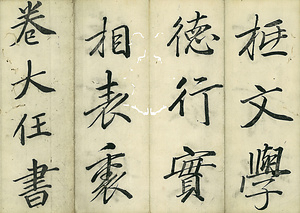 文學
徳行實
相表裏
卷大任書